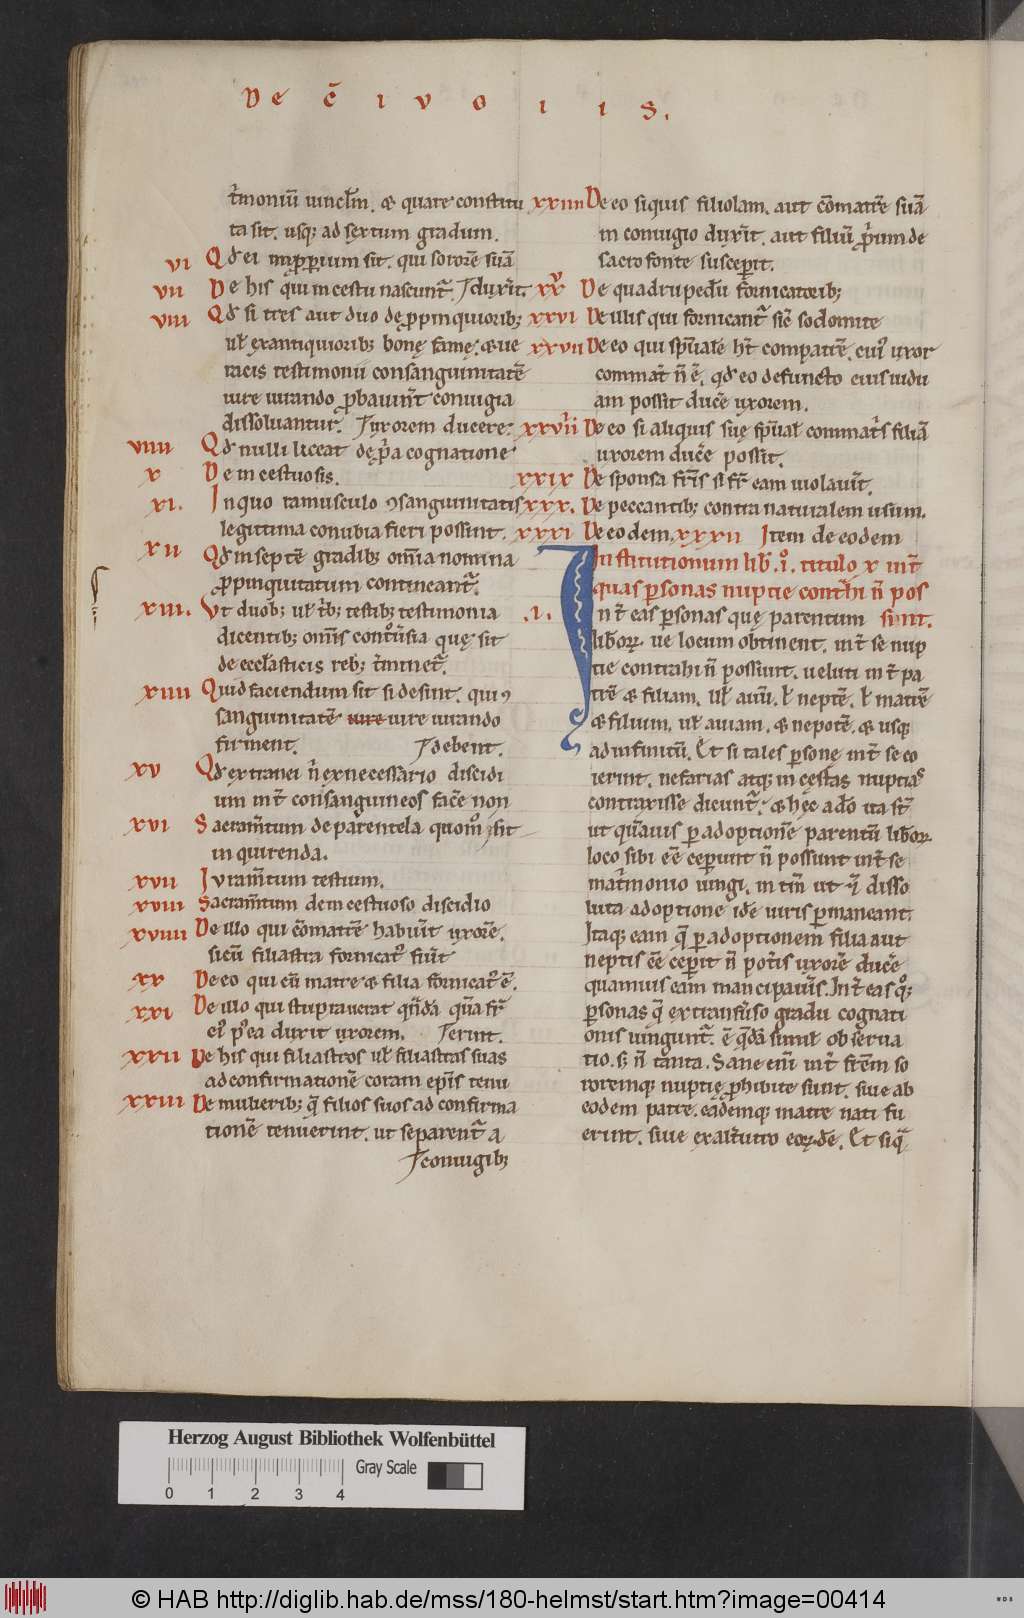 De c̄ i v o i i s.
t̄moniū uinclm̄. & quare constitu
ta sit. usq; ad sextum gradum.
vi Qd̄ ei inpp̄rium sit. qui sororē suā
vii De his qui incestu nascunt̄. duxit.
viii Qd̄ si tres aut duo de ppinquiorib;
ul̄ ex antiquiorib; bonę famę. & ue
racis testimonii consanguinitatē
iure iurando pbauint̄ coniugia
dissoluantur. uxorem ducere.
viiii Qd̄ nulli liceat de pp̄a cognatione
x De incestuosis.
xi. In quo ramusculo ꝯsanguinitatis
legittima conubia fieri possint.
xii Qd̄ in septē gradib; om̄ia nomina
ppinquitatum contineant̄.
xiii. Vt duob; ul̄ t̄b; testib; testimonia
dicentib; om̄is cont̄usia quę sit
de eccl̄asticis reb; t̄minet̄.
xiiii Quid faciendum sit si desint. qui ꝯ
sanguinitatē iure iure iurando
firment. debent.
xv Qd̄ extranei n̄ ex necessario discidi
um int̄ consanguineos facē non
xvi Sacram̄tum de parentela quom̊ sit
inquirenda.
xvii Iuram̄tum testium.
xviii Sacram̄tum de incestuoso discidio
xviiii De illo qui cōmatrē habuit̄ uxorē.
sicut filiastra fornicat̄ fuit̄
xx De eo qui cū matre & filia fornicat̄ ē.
xxi De illo qui stuprauerat qn̄dā quā fr̄
ei' p'ea duxit uxorem. erint.
xxii De his qui filiastros ul̄ filiastras suas
ad confirmationē coram ep̄is tenu
xxiii De mulierib; q̄ filios suos ad confirma
tionē tenuerint. ut separent̄ a
coniugib;
xxiiii De eo siquis filiolam. aut cōmatrē suā
in coniugio duxit̄. aut filiū p̄mum de
sacro fonte susceperit.
xxv De quadrupedū fornicatorib;
xxvi De illis qui fornicant̄ sic̄ sodomite
xxvii De eo qui sp̄ualē ht̄ compatrē. cui' uxor
commat̄ n̄ ē. qd̄ eo defuncto eius uidu
am possit ducē uxorem.
xxviii De eo si aliquis suę sp̄ual̄ commat̄s filiā
uxorem ducē possit.
xxix De sponsa fr̄is si fr̄ eam uiolauit̄.
xxx. De peccantib; contra naturalem usum.
xxxi De eodem. xxxii Item de eodem
Institutionum lib̄. i. titulo x int̄
quas psonas nuptie conthi n̄ pos
.i. n t̄ eas psonas quę parentum sunt.
liberoꝝ ue locum obtinent. int̄ se nup
tie contrahi n̄ possunt. ueluti int̄ pa
trē & filiam. ul̄ auū. l̄ neptē. l̄ matrē
& filium. ul̄ auiam. & nepotē. & usq
ad infinitū. Et si tales psonę int̄ se co
ierint. nefarias atq; incęstas nuptias
contraxisse dicunt̄. & hęc adō ita st̄
ut quāuis p adoptionē parentū liberoꝝ
loco sibi eē ceperint n̄ possunt int̄ se
mat̄monio iungi. in tm̄ ut & disso
luta adoptione idē iuris pmaneant.
Itaq; eam q̄ p adoptionem filia aut
neptis eē ceperit n̄ pot̄is uxorē ducē
quamuis eam mancipaueris. Int̄ eas q;
psonas q̄ ex transūso gradu cognati
onis iungunt̄. ē q̄dā simil̄ obserua
tio. s; n̄ tanta. Sane enī int̄ fr̄em so
roremq; nuptię phibite sunt. siue ab
eodem patre. eademq; matre nati fu
erint. siue ex alt̄utro eoꝝdē. Et siq̄
Herzog August Bibliothek Wolfenbüttel
Gray Scale
0 1 2 3 4
© HAB http://diglib.hab.de/mss/180-helmst/start.htm?image=00414